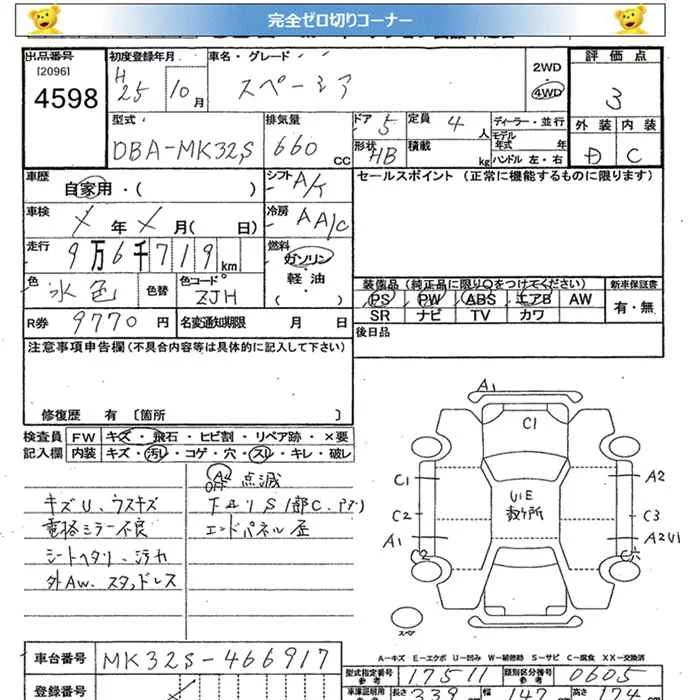 完全ゼロ切りコーナー
出品番号
[2096]
4598
初度登録年月
H25
10月
車名・グレード
スペーシア
2WD
4WD
評価点
3
型式
DBA-MK32S
排気量
660
CC
ドア
5
形状
HB
定員
4
人
積載
kg
ディーラー・並行
モデル年式
年
ハンドル 左・右
外装
D
内装
C
車歴
自家用・(
)
シフト
A/T
セールスポイント (正常に機能するものに限ります)
車検
X年X月(
日)
冷房
AA/C
走行
9万6千719km
燃料
ガソリン
軽油
(
)
色
水色
色替
色コード
ZJH
装備品 (純正品に限り○をつけてください)
PS
PW
ABS
エアB
AW
SR
ナビ
TV
カワ
新車保証書
有・無
R券
9770円
名変通知期限
月
日
後日品
注意事項申告欄(不具合内容等は具体的に記入して下さい)
修復歴 有 〔箇所
〕
検査員
記入欄
FW
キズ・飛石・ヒビ割・リペア跡・×要
内装
キズ・汚レ・コゲ・穴・スレ・キレ・破レ
キズU、ウスキズ
電格ミラー不良
シートヘタリ、汚れ
外AW、スタッドレス
OFF
点滅
下廻りS1部C、アブリ
エンドパネル歪
A1
C1
C1
C2
A1
C2
UIE
数ヶ所
A2
C3
A2U1
スペア
A−キズ E−エクボ U−凹み W−補修跡 S−サビ C−腐食 XX−交換済
車台番号
MK32S-466917
登録番号
型式指定番号
参考
17511
類別区分番号
参考
0605
車庫証明用
長さ
339
幅
147
高さ
174